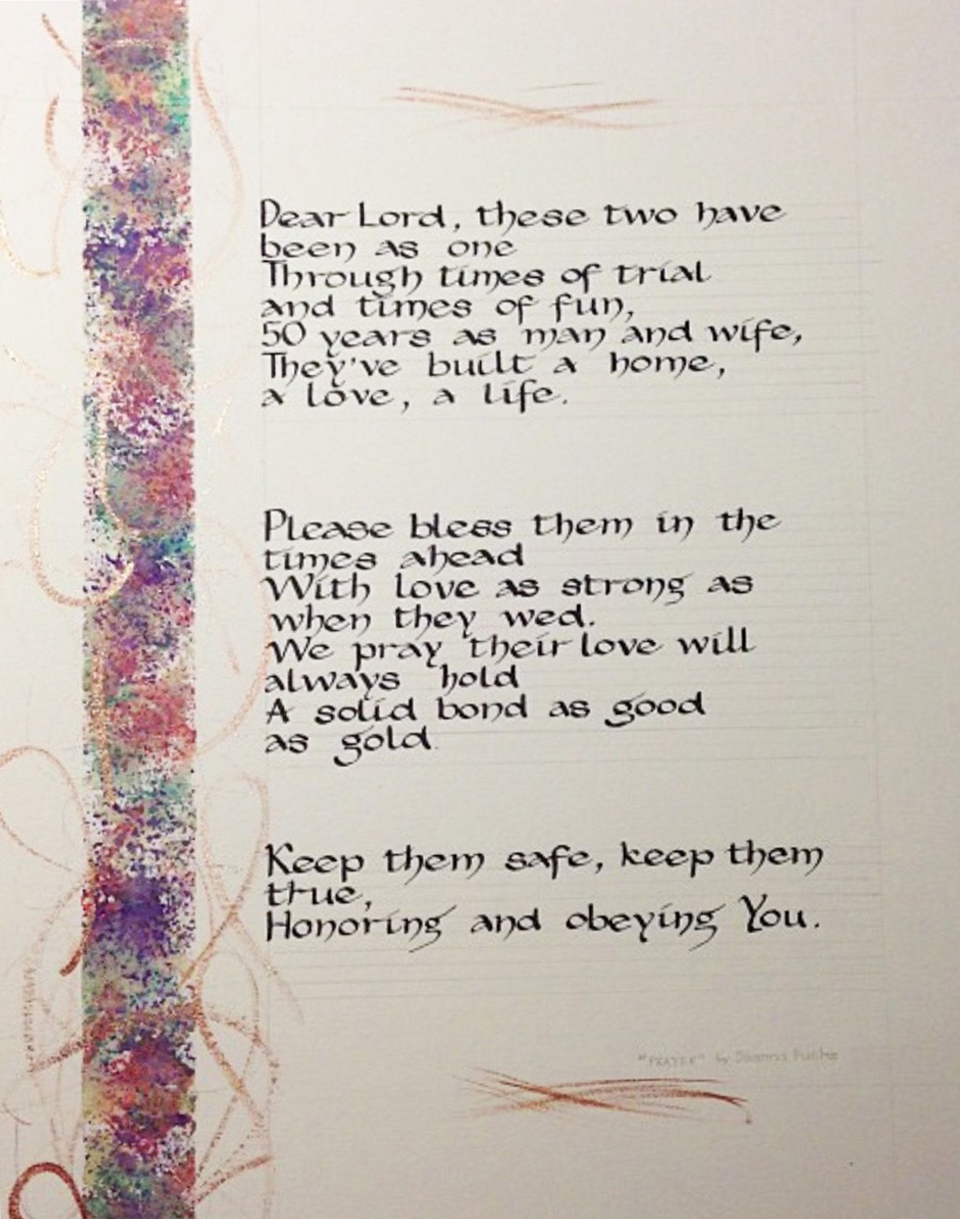 Dear Lord, these two have
been as one
Through times of trial
and times of fun,
50 years as man and wife,
They've built a home,
a love, a life.
Please bless them in the
times ahead
With love as strong as
when they wed.
We pray their love will
always hold
A solid bond as good
as gold.
Keep them safe, keep them
true,
Honoring and obeying You.
"PRAYER" by Joanna Fuchs